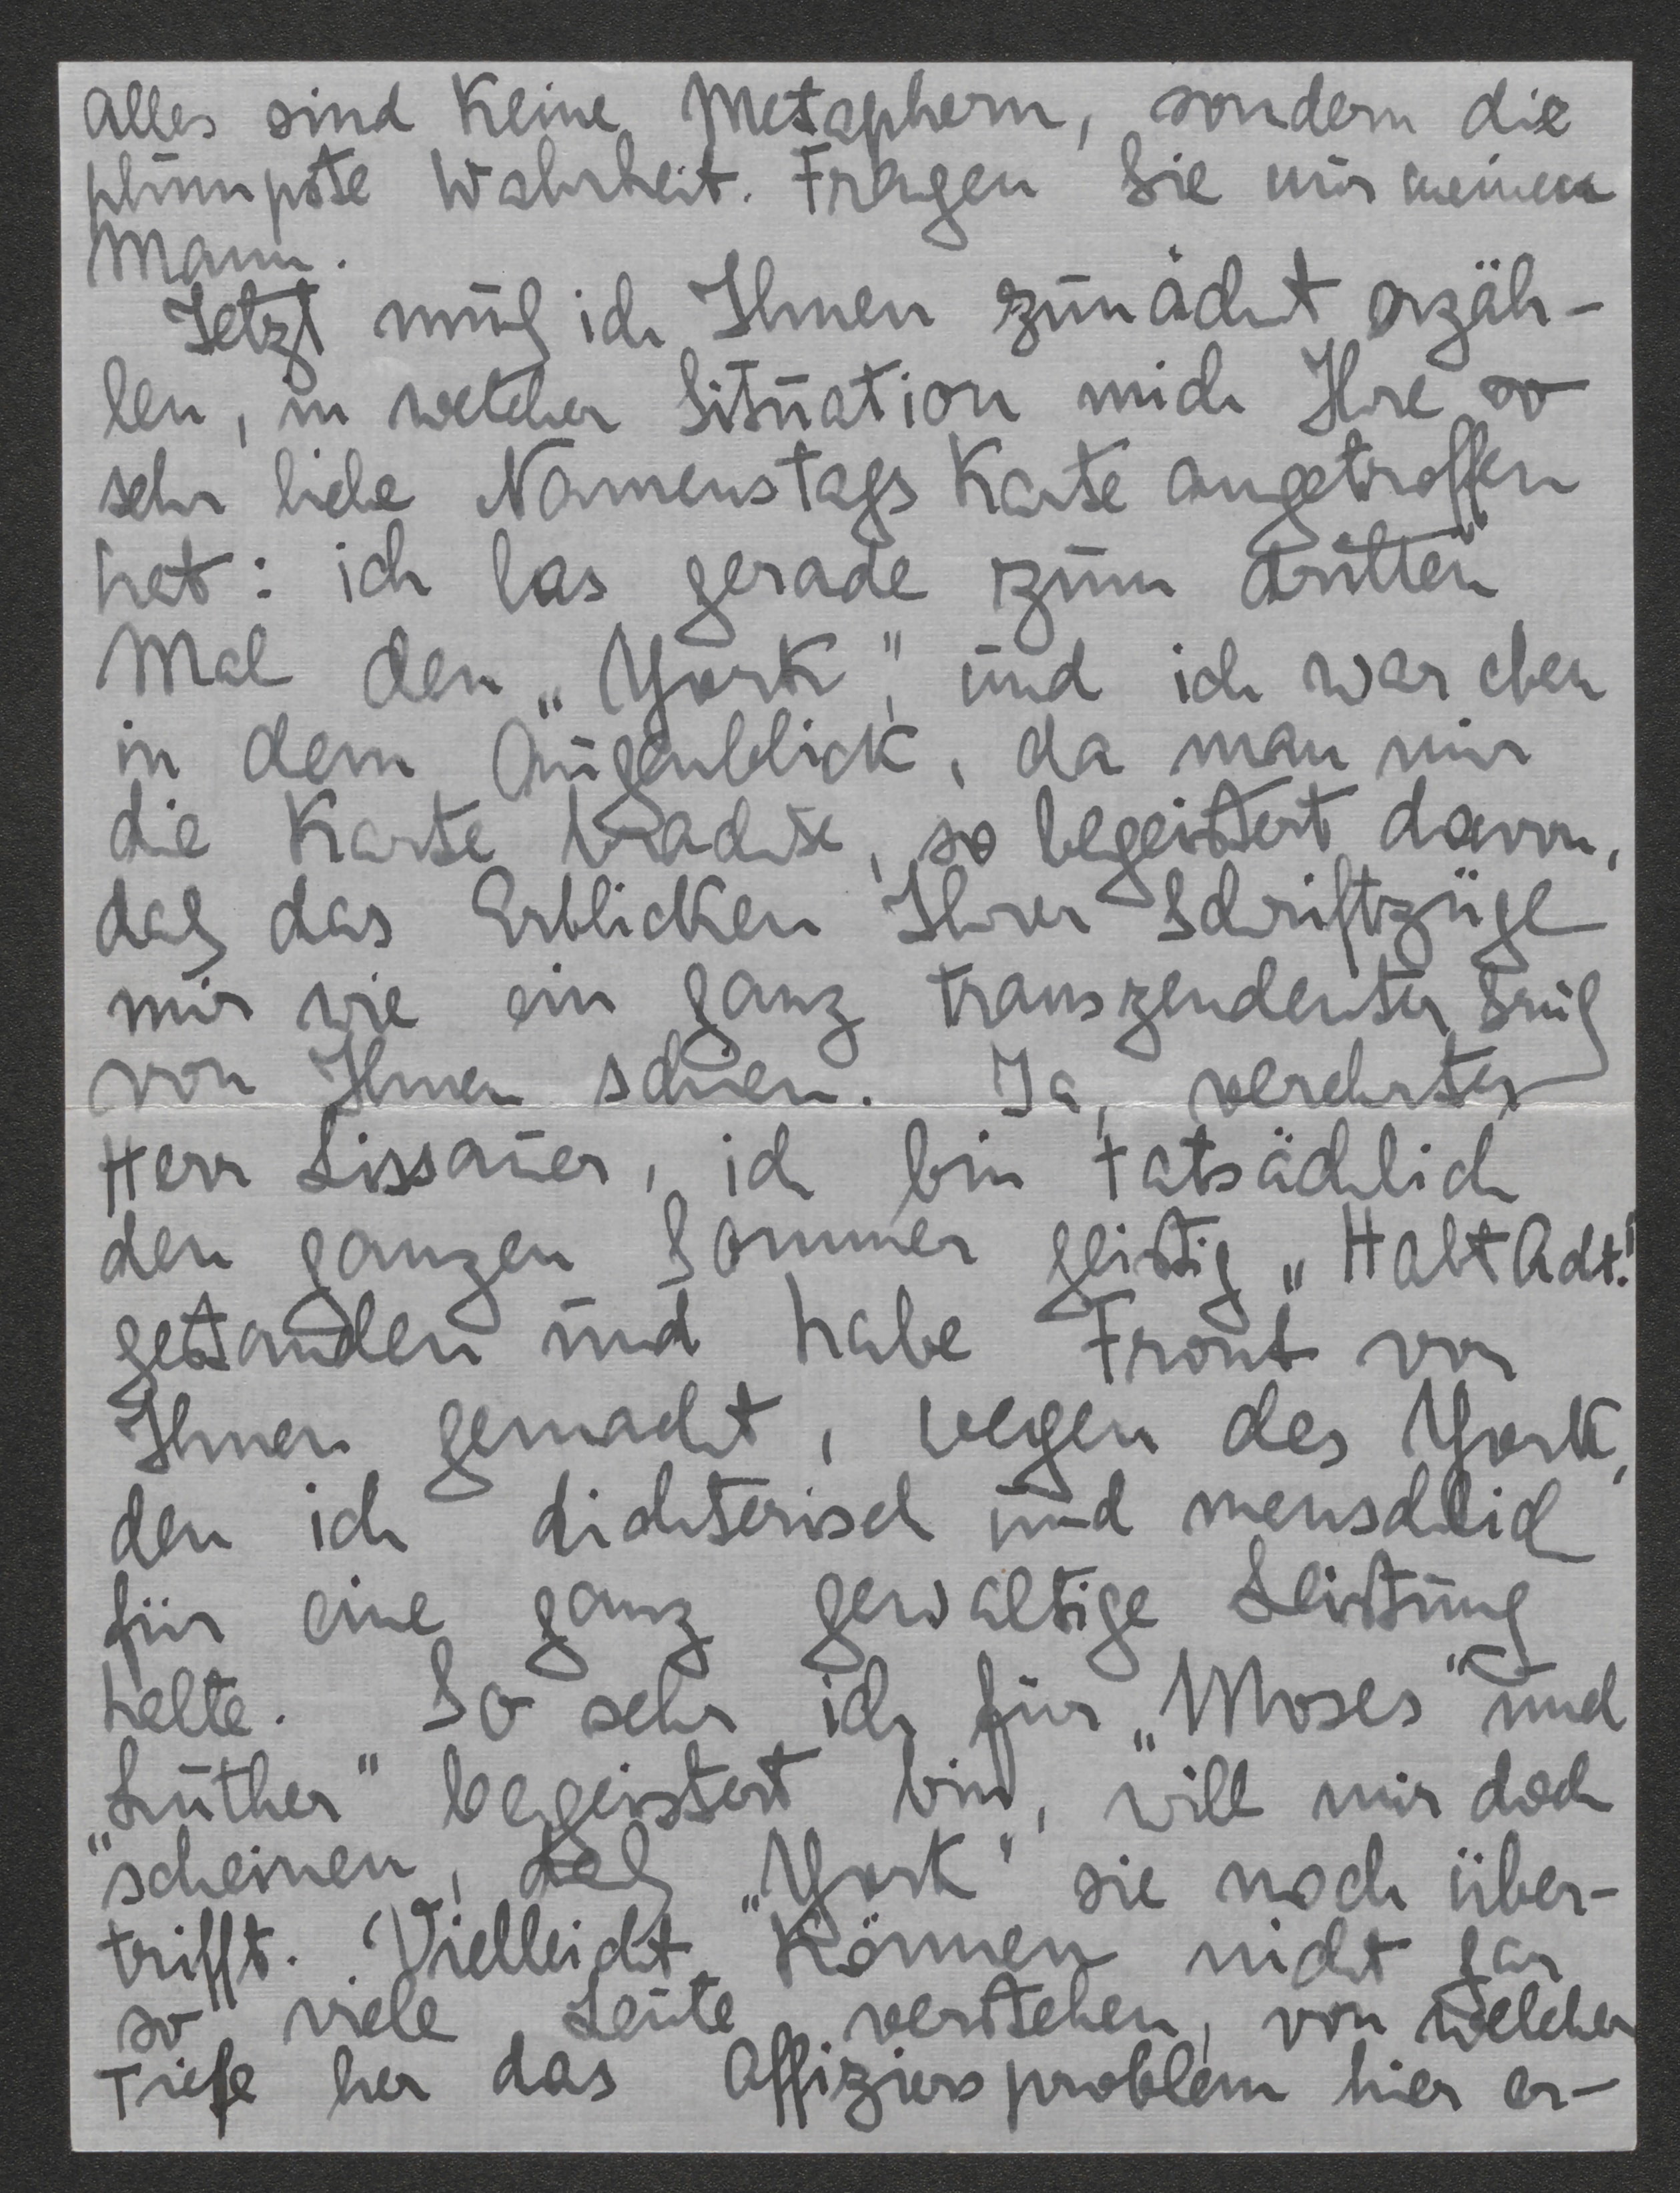 alles sind keine Metaphern, sondern die
plumpste Wahrheit. Fragen Sie nur meinen
Mann.
Jetzt muß ich Ihnen zunächst erzäh-
len, in welcher Situation mich Ihre so
sehr liebe Namenstags Karte angetroffen
hat: ich las gerade zum dritten
Mal den „York", und ich war eben
in dem Augenblick, da man mir
die Karte brachte, so begeistert davon,
daß das Erblicken Ihrer Schriftzüge
mir wie ein ganz transzendenter Gruß
von Ihnen schien. Ja, verehrter
Herr Lissauer, ich bin tatsächlich
den ganzen Sommer geistig „Habt Acht!"
gestanden und habe Front vor
Ihnen gemacht, wegen des York,
den ich dichterisch und menschlich
für eine ganz gewaltige Leistung
halte. So sehr ich für „Moses" und
„Luther" begeistert bin, will mir doch
scheinen, daß „York" sie noch über-
trifft. Vielleicht können nicht gar
so viele Leute verstehen, von welcher
Tiefe her das Offiziersproblem hier er-